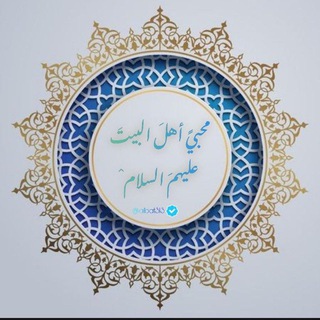 محبيِّ أهلَ البيتَ
عليهمَ السلام ^